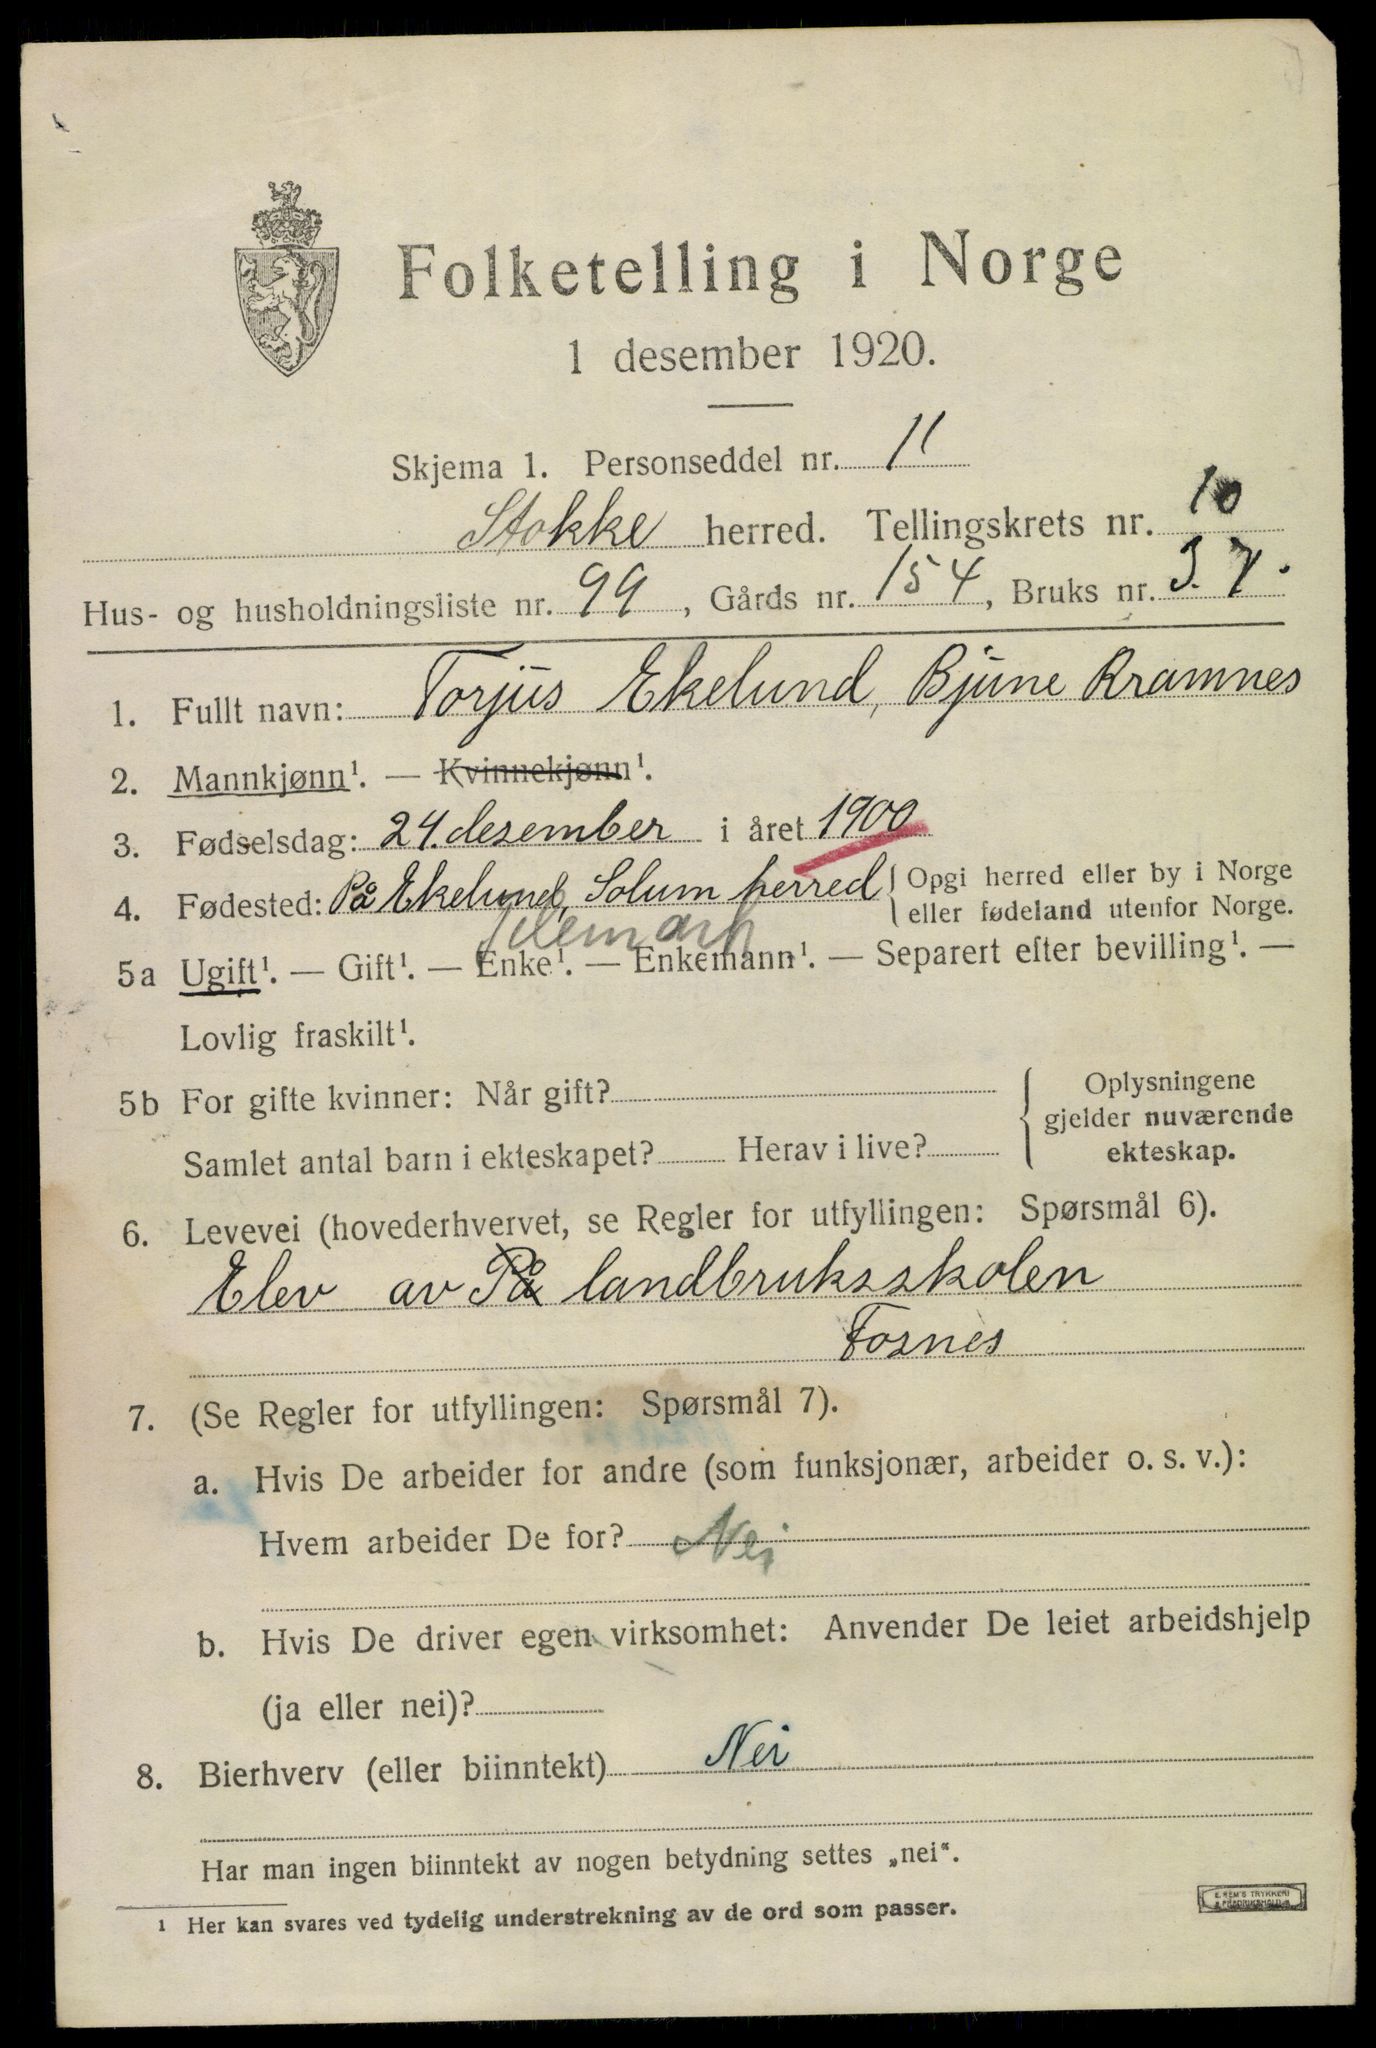 Folketelling i Norge
1 desember 1920.
Skjema 1. Personseddel nr. 11
Stokke herred. Tellingskrets nr. 10
Hus- og husholdningsliste nr. 99, Gårds nr. 154, Bruks nr. 3.7.
1. Fullt navn: Torjus Ekelund, Bjune Ramnes
2. Mannkjønn¹. — Kvinnekjønn¹.
3. Fødselsdag: 24. desember i året 1900
4. Fødested: På Ekelund, Solum herred { Opgi herred eller by i Norge
eller fødeland utenfor Norge.
Telemark
5a Ugift¹. — Gift¹. — Enke¹. — Enkemann¹. — Separert efter bevilling¹. —
Lovlig fraskilt¹.
5b For gifte kvinner: Når gift? { Oplysningene
gjelder nuværende
Samlet antal barn i ekteskapet? Herav i live? ekteskap.
6. Levevei (hovederhvervet, se Regler for utfyllingen: Spørsmål 6).
Elev av På landbruksskolen
Fosnes
7. (Se Regler for utfyllingen: Spørsmål 7).
a. Hvis De arbeider for andre (som funksjonær, arbeider o. s. v.):
Hvem arbeider De for? Nei
b. Hvis De driver egen virksomhet: Anvender De leiet arbeidshjelp
(ja eller nei)?
8. Bierhverv (eller biinntekt) Nei
Har man ingen biinntekt av nogen betydning settes „nei“.
¹ Her kan svares ved tydelig understrekning av de ord som passer.
E. SEM'S TRYKKERI
FREDRIKSHALD